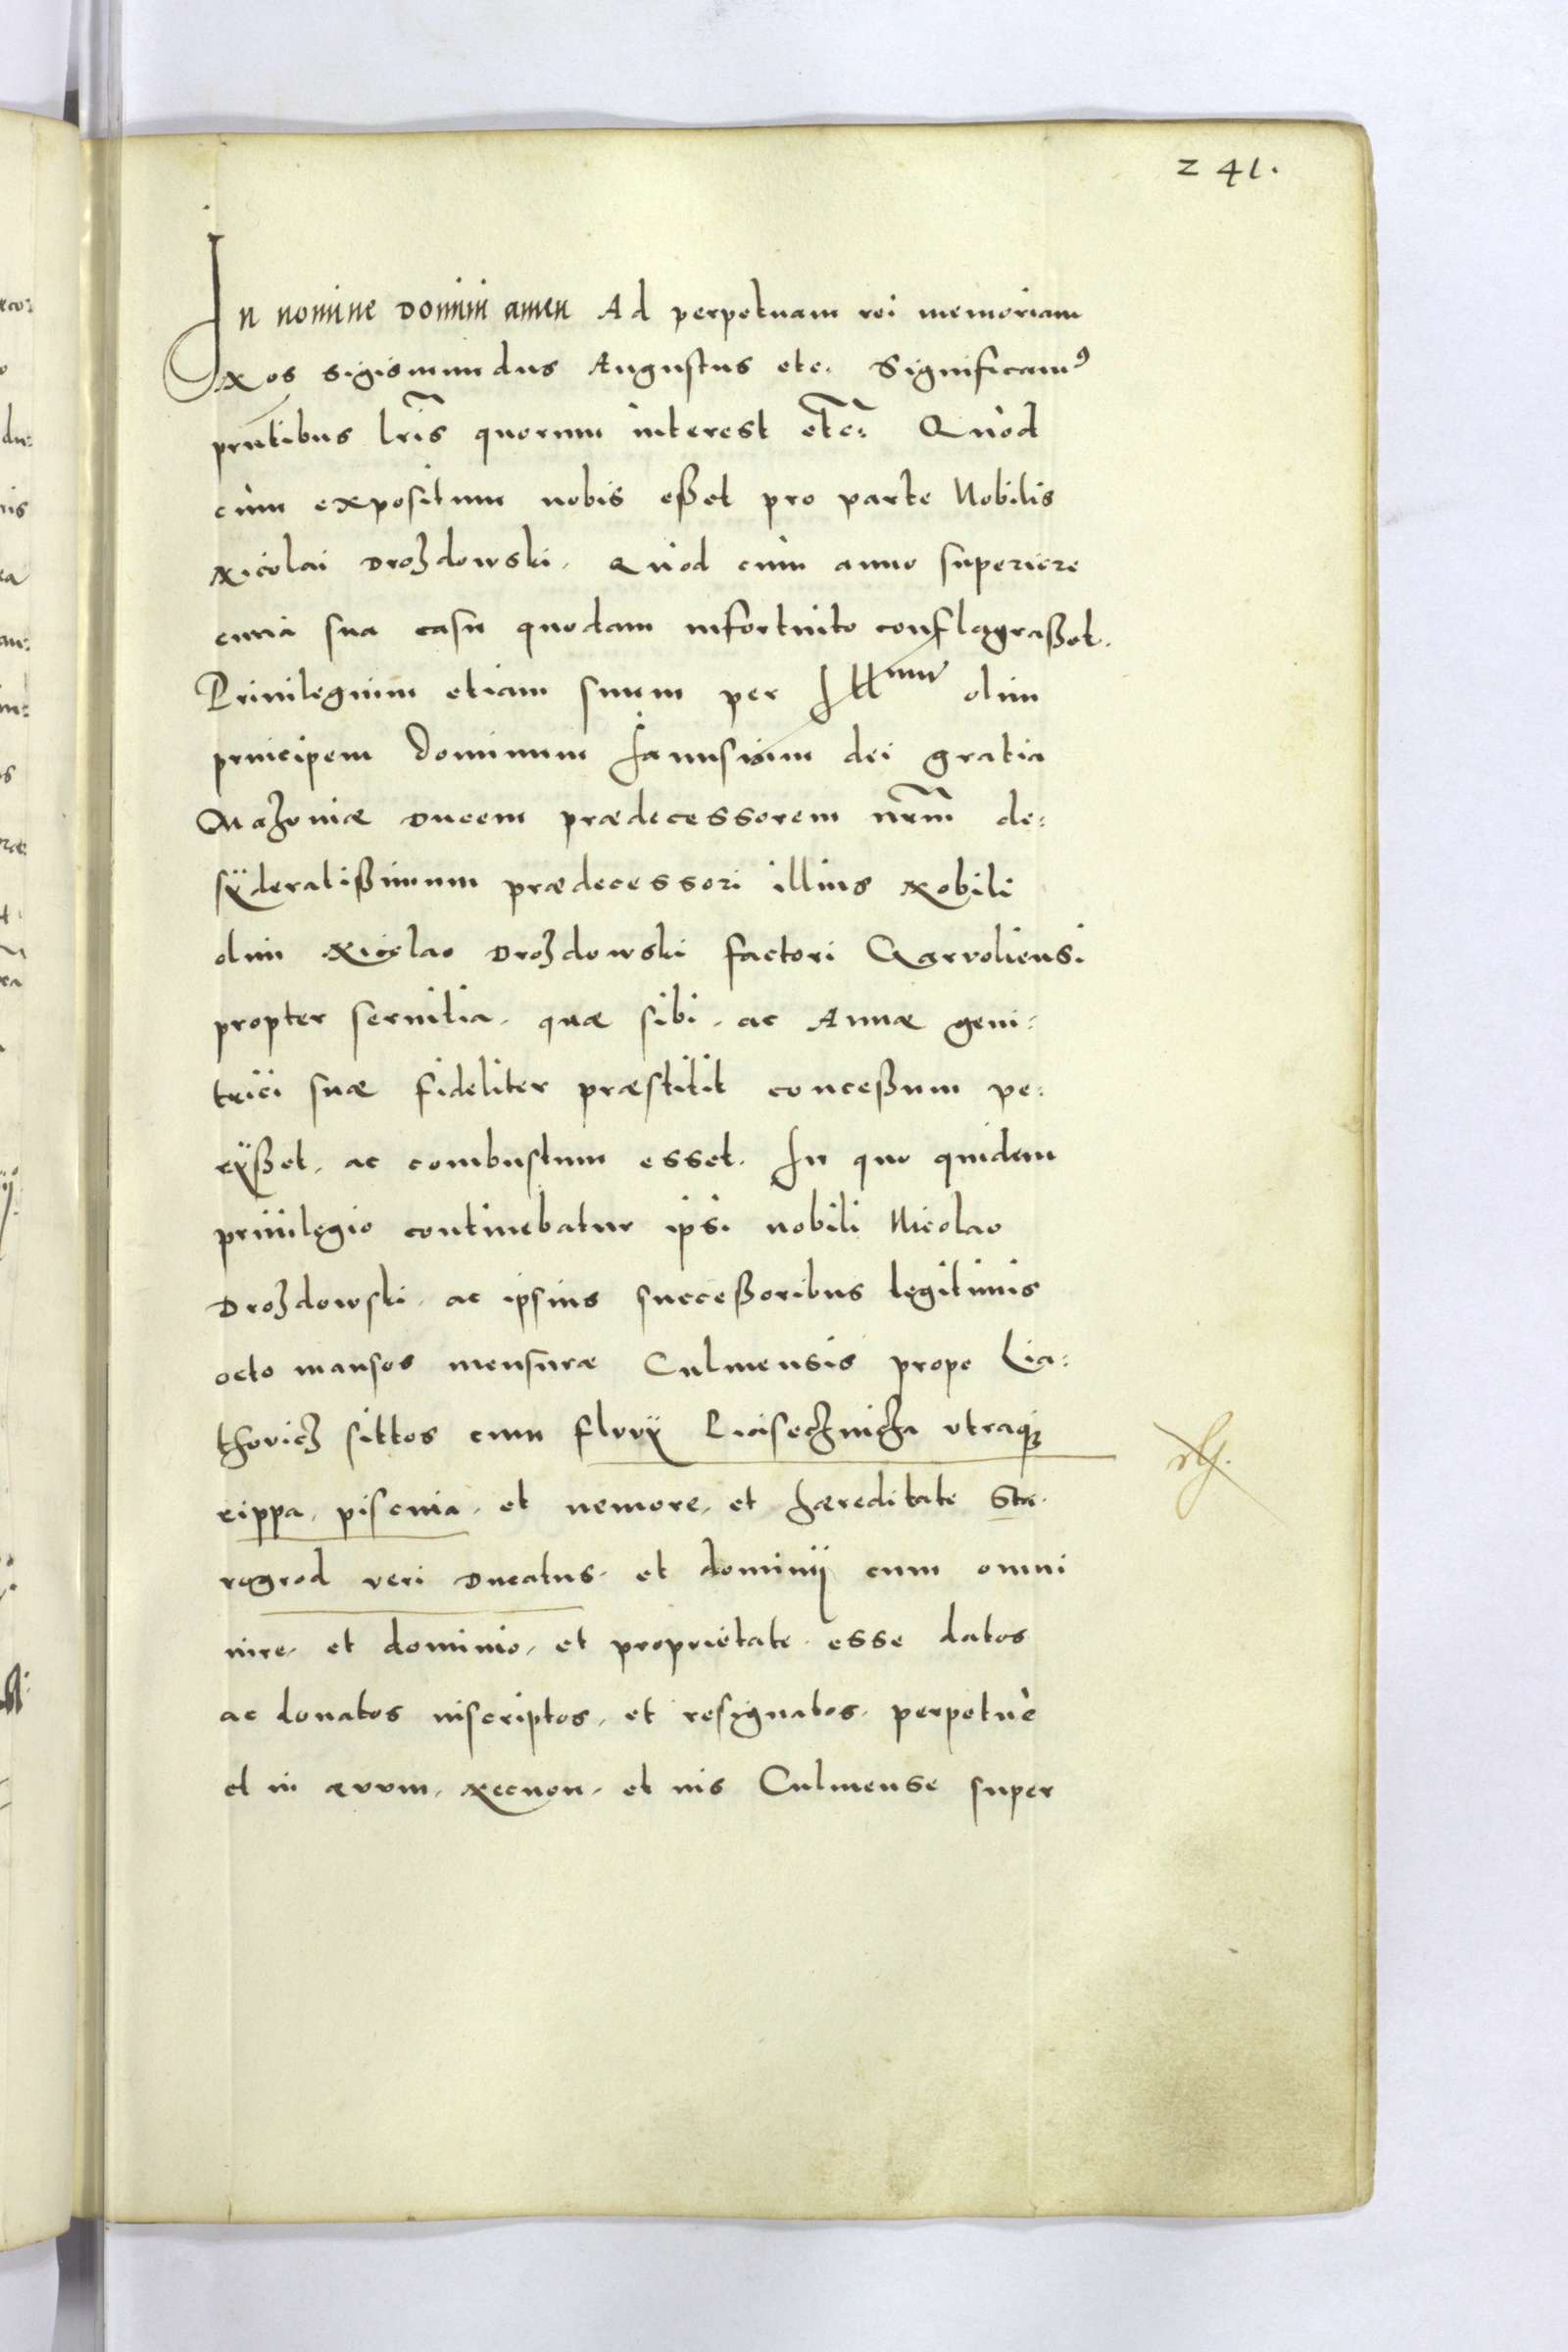 241.
In nomine Domini amen Ad perpetuam rei memoriam
Nos Sigismundus Augustus etc. Significamꝰ
pr̃ntibus lr̃is quorum interest etc: Quòd
cùm expositum nobis eßet pro parte Nobilis
Nicolai Drozdowski. Quòd cùm anno superiore
curia sua casu quodam infortuito conflagraßet.
Priuilegium etiam suum per Illmum olim
principem Dominum Janusium dei gratia
Mazoniæ Ducem prædecessorem nr̃m de:
sÿderatißimum prædecessori illius Nobili
olim Nicolao Drozdowski factori Garvoliensi
propter seruitia, quæ sibi, ac Annæ geni:
trici suæ fideliter præstitit conceßum pe:
rÿßet, ac combustum esset. In quo quidem
priuilegio continebatur ipsi nobili Nicolao
Drozdowski, ac ipsius succeßoribus legitimis
octo mansos mensuræ Culmensis prope Lia:
thovicz sittos cum fluvÿ utraqꝫ
rippa, piscina, et nemore, et hæreditate Sta:
rogrod veri Ducatus, et dominij cum omni
iure, et dominio, et proprietate esse datos
ac donatos inscriptos, et resignatos, perpetuè
et in ævum, Necnon, et ius Culmense super